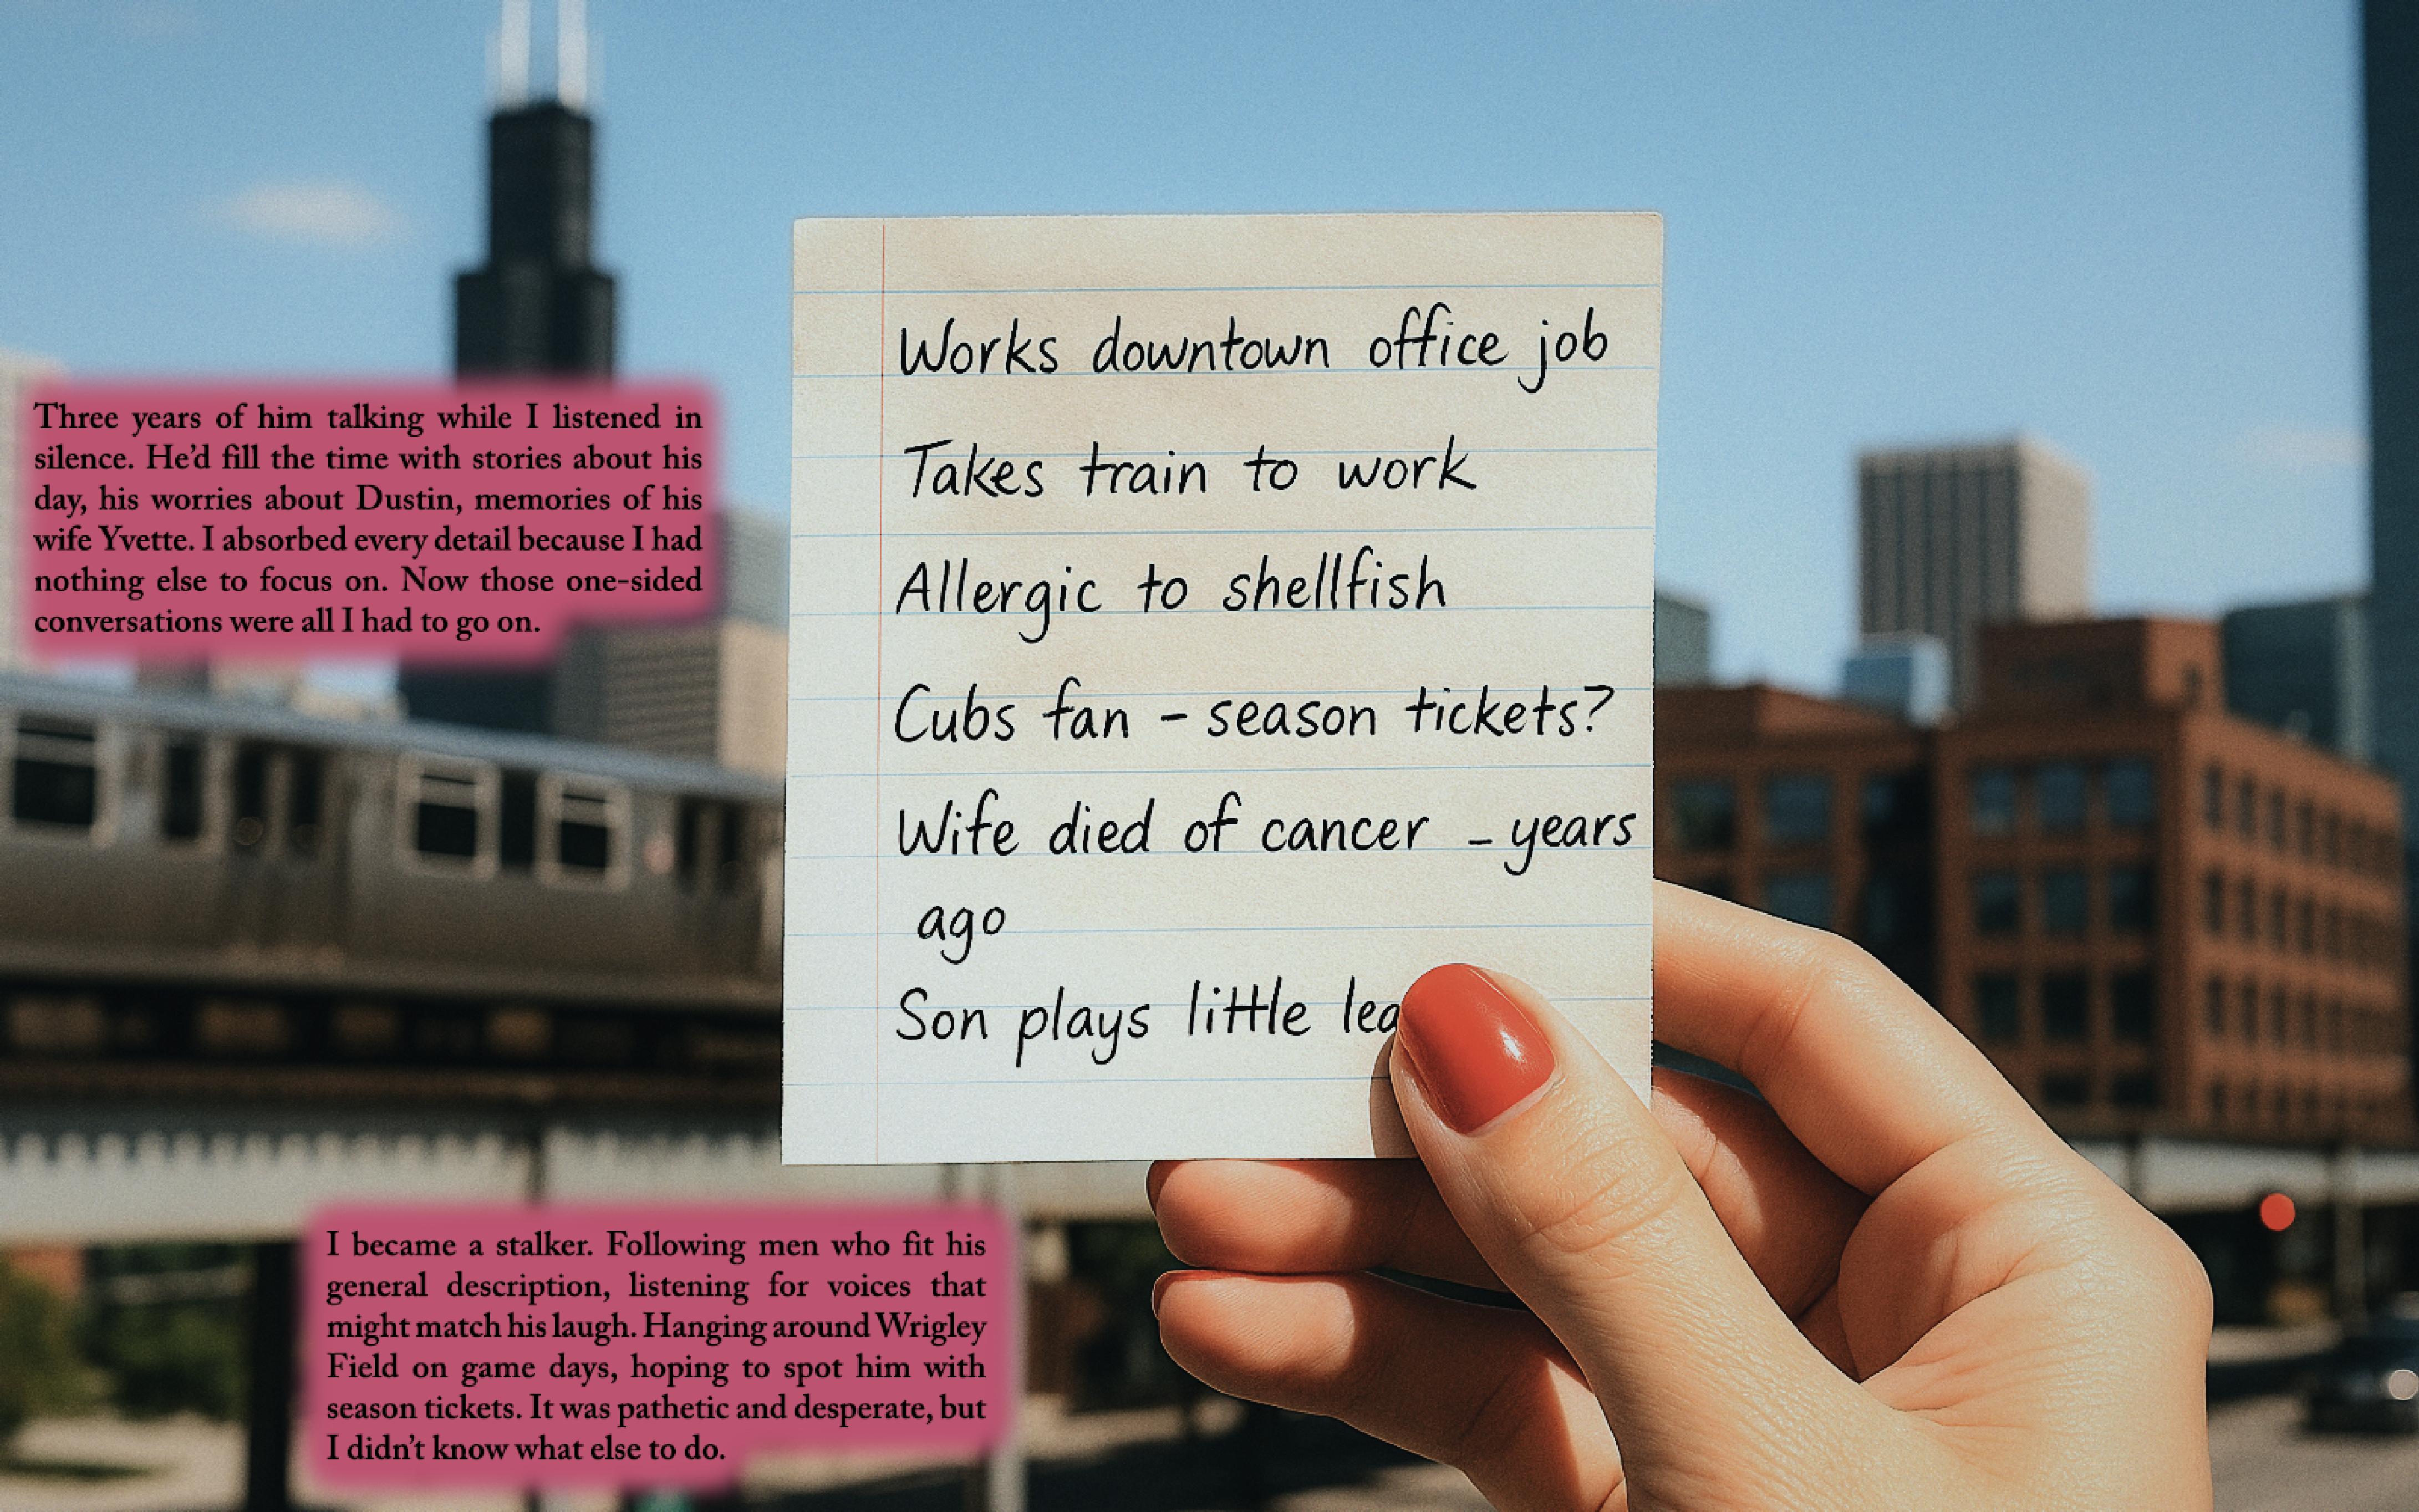 Three years of him talking while I listened in
silence. He’d fill the time with stories about his
day, his worries about Dustin, memories of his
wife Yvette. I absorbed every detail because I had
nothing else to focus on. Now those one-sided
conversations were all I had to go on.
Works downtown office job
Takes train to work
Allergic to shellfish
Cubs fan – season tickets?
Wife died of cancer _ years
ago
Son plays little lea
I became a stalker. Following men who fit his
general description, listening for voices that
might match his laugh. Hanging around Wrigley
Field on game days, hoping to spot him with
season tickets. It was pathetic and desperate, but
I didn’t know what else to do.